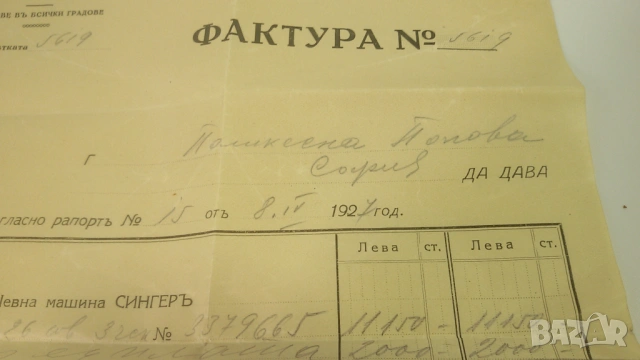 ВЕ ВЪ ВСИЧКИ ГРАДОВЕ
5619
ФАКТУРА № 5619
Г Поликсена Попова
София ДА ДАВА
гласно рапортъ № 15 отъ 8.IV 1927 год.
Лева ст. Лева ст.
Шевна машина СИНГЕРЪ
26 № 3379665 11150 - 11150
2000 - 2000
BAZAR.bg